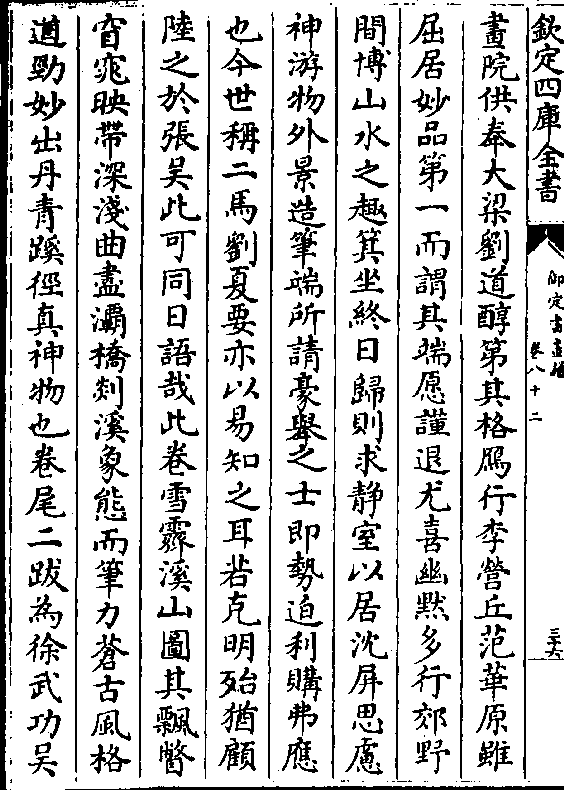 欽定四庫全書
御定書畫譜
卷八十二
三六
畫院供奉大梁劉道醇第其格鴈行李營丘范華原雖
屈居妙品第一而謂其端愿謹退尤喜幽默多行郊野
間博山水之趣箕坐終日歸則求静室以居沈屏思慮
神游物外景造筆端所請豪舉之士即勢迫利購弗應
也今世稱二馬劉夏要亦以易知之耳若克明殆猶顧
陸之於張吴此可同日語哉此卷雪霽溪山圖其飄瞥
窅窕映帶深淺曲盡灞橋剡溪象態而筆力蒼古風格
遒勁妙出丹青蹊徑真神物也卷尾二跋為徐武功吴